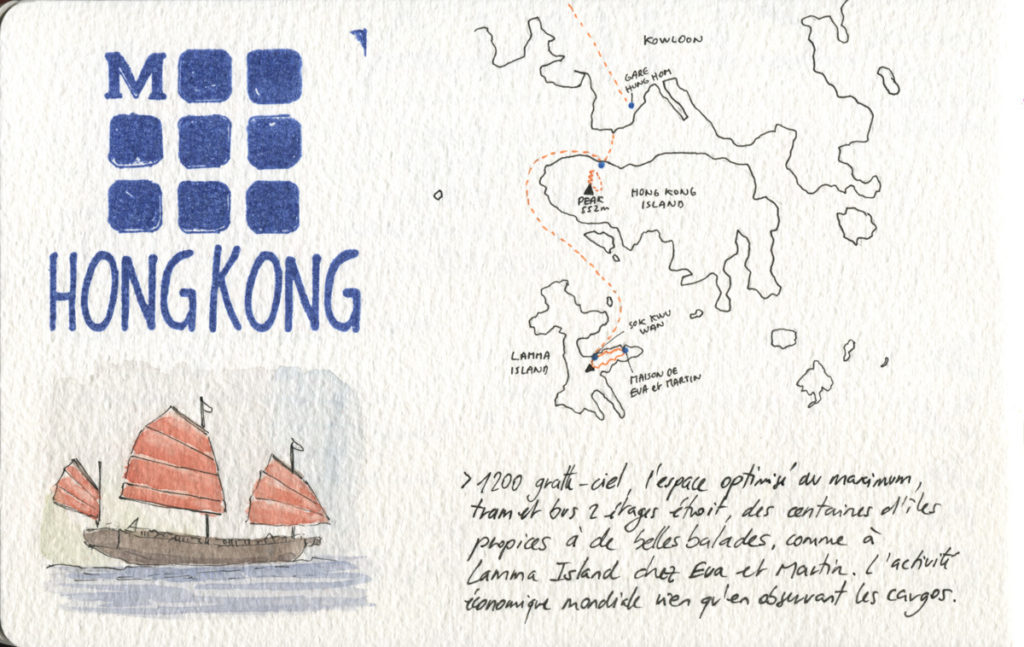 M
HONG KONG
KOWLOON
GARE
HUNG HOM
PEAK
552m
HONG KONG
ISLAND
SOK KWU
WAN
LAMMA
ISLAND
MAISON DE
EVA et MARTIN
> 1200 gratte-ciel, l'espace optimisé du maximum,
tram et bus 2 étages étroit, des centaines d'îles
propices à de belles balades, comme à
Lamma Island chez Eva et Martin. L'activité
économique mondiale rien qu'en observant les cargos.